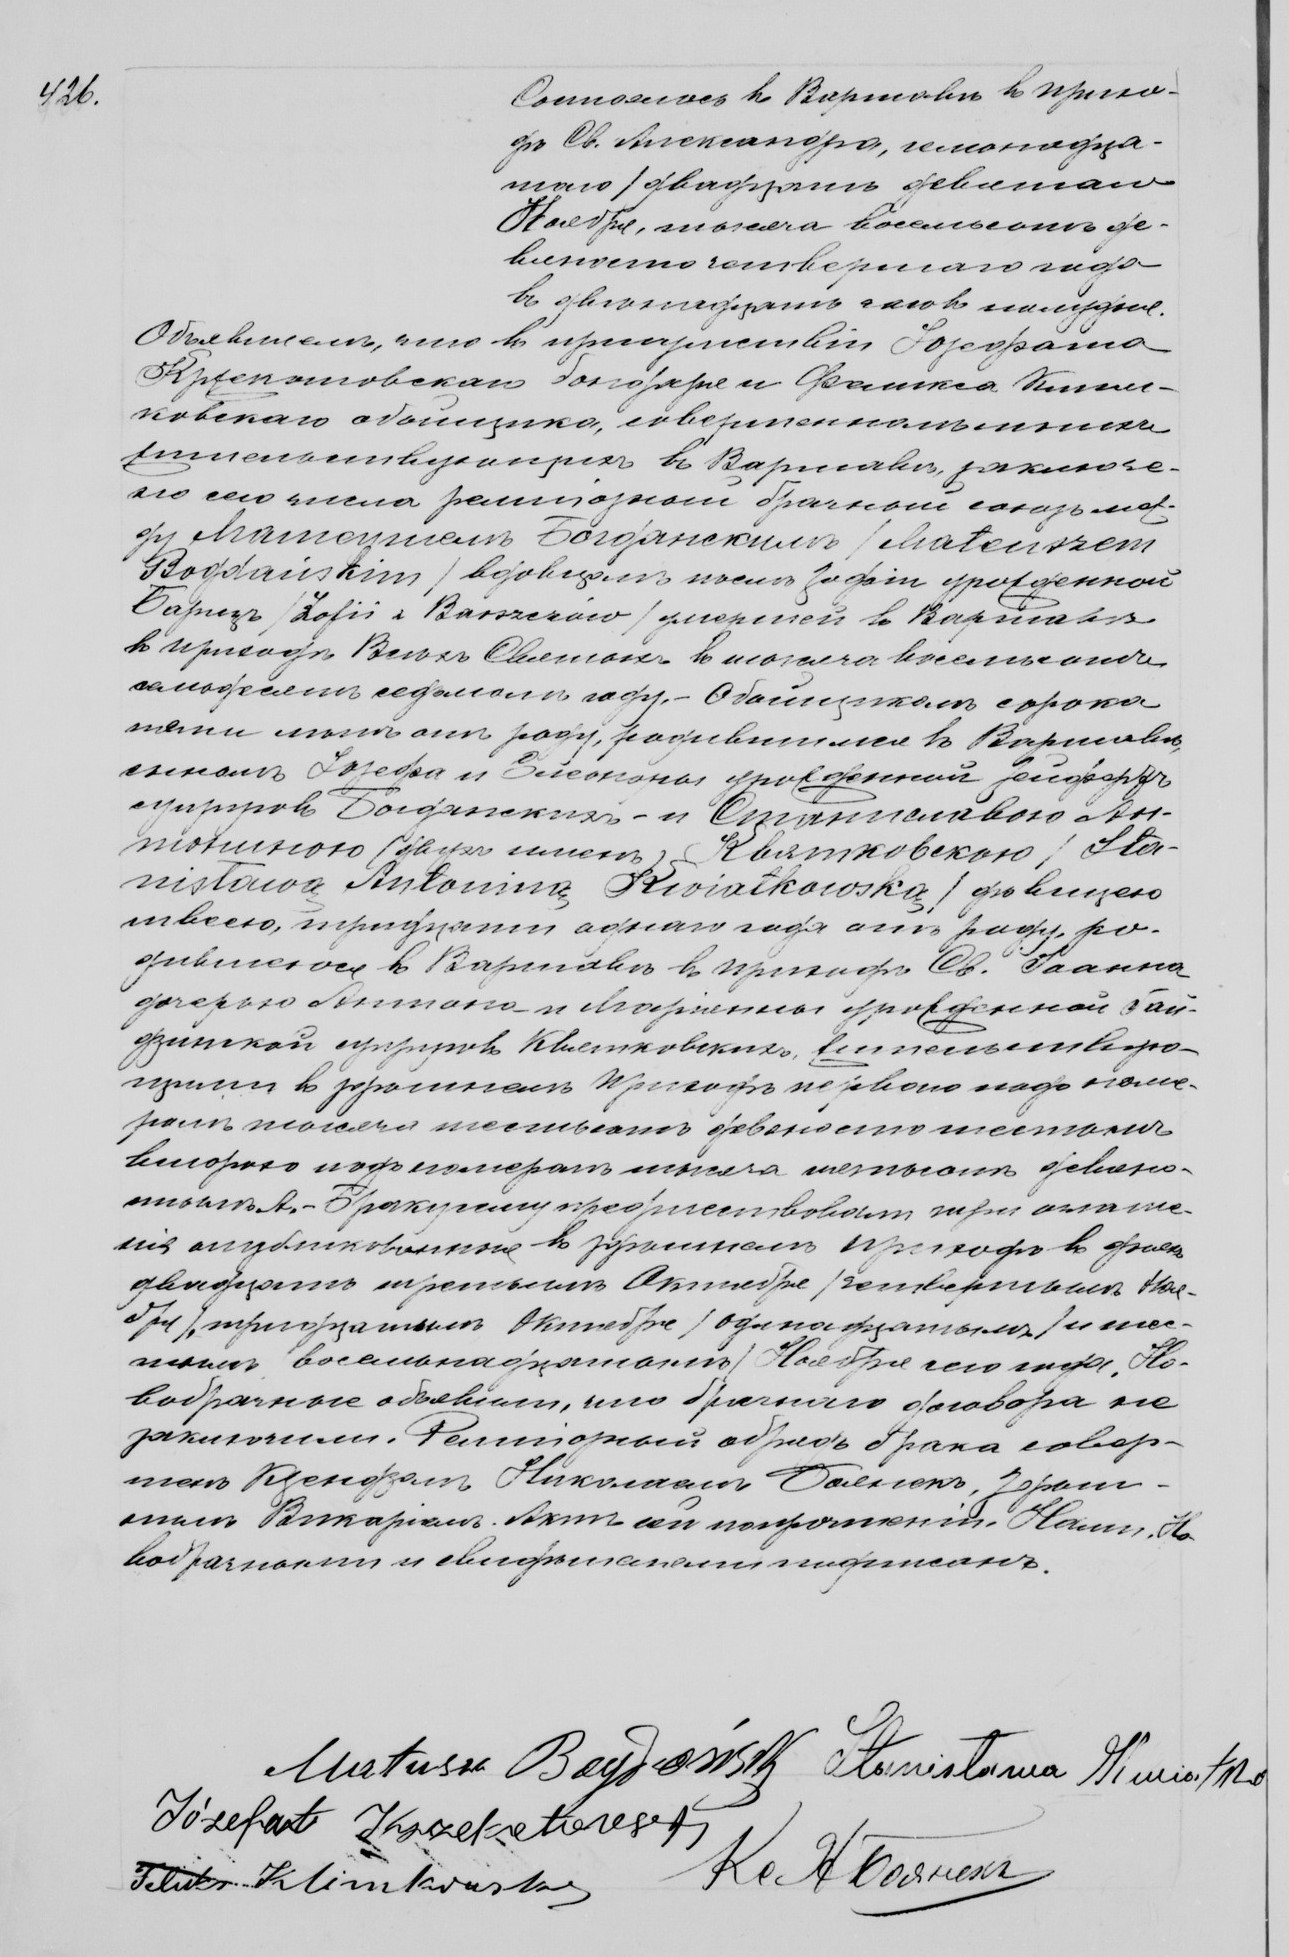 426.
Состоялось в Варшаве в прихо-
де Св. Александра, семнадца-
таго / двадцать девятаго
Ноября, тысяча восемьсот де-
вяносто четвертаго года
в двенадцать часов полудня.
Объявляем, что в присутствіи Іозефата
Кржекотовскаго бондаря и Феликса Клим-
ковскаго обойщика, совершеннолетних
жительствующих в Варшаве, заключе-
но сего числа религіозный брачный союз меж-
ду Матеушем Богданским / Mateuszem
Bogdańskim / вдовцем после Зофіи урожденной
Барщ / Zofii z Barszczów / умершей в Варшаве
в приходе Всех Святых в тысяча восемьсот
семьдесят седьмом году, - Обойщиком сорока
пяти лет от роду, родившимся в Варшаве,
сыном Іозефа и Елеоноры урожденной Зейферт
супругов Богданских - и Станиславою Ан-
тониною / двух имен / Квятковскою / Sta-
nisławą Antoniną Kwiatkowską / девицею
швеею, тридцати одного года от роду, ро-
дившеюся в Варшаве в приходе Св. Іоанна
дочерью Антона и Маріанны урожденной Гай-
дзинской супругов Квятковских, жительствую-
щими в здешнем приходе первого под номе-
ром тысяча шестьсот девяносто шестым
второю под номером тысяча шестьсот девяно-
стым А. - Браку сему предшествовали три оглаше-
нія опубликованные в здешнем приходе в днях
двадцать третьем Октября / четвертым Ноя-
бря /, тридцатым Октября / одинадцатым / и шес-
тым восемьнадцатым / Ноября сего года. Но-
вобрачные объявили, что брачнаго договора не
заключили. Религіозный обряд брака совер-
шен Ксендзом Николаем Боянек, здеш-
ним Викаріем. Акт сей по прочтеніи. Нами, Но
вобрачными и свидетелями подписан.
Mateusz Bogdański Stanisława Kwiatko
Józefat Krzekotowski
Feliks Klimkowski Кс Н Боянек